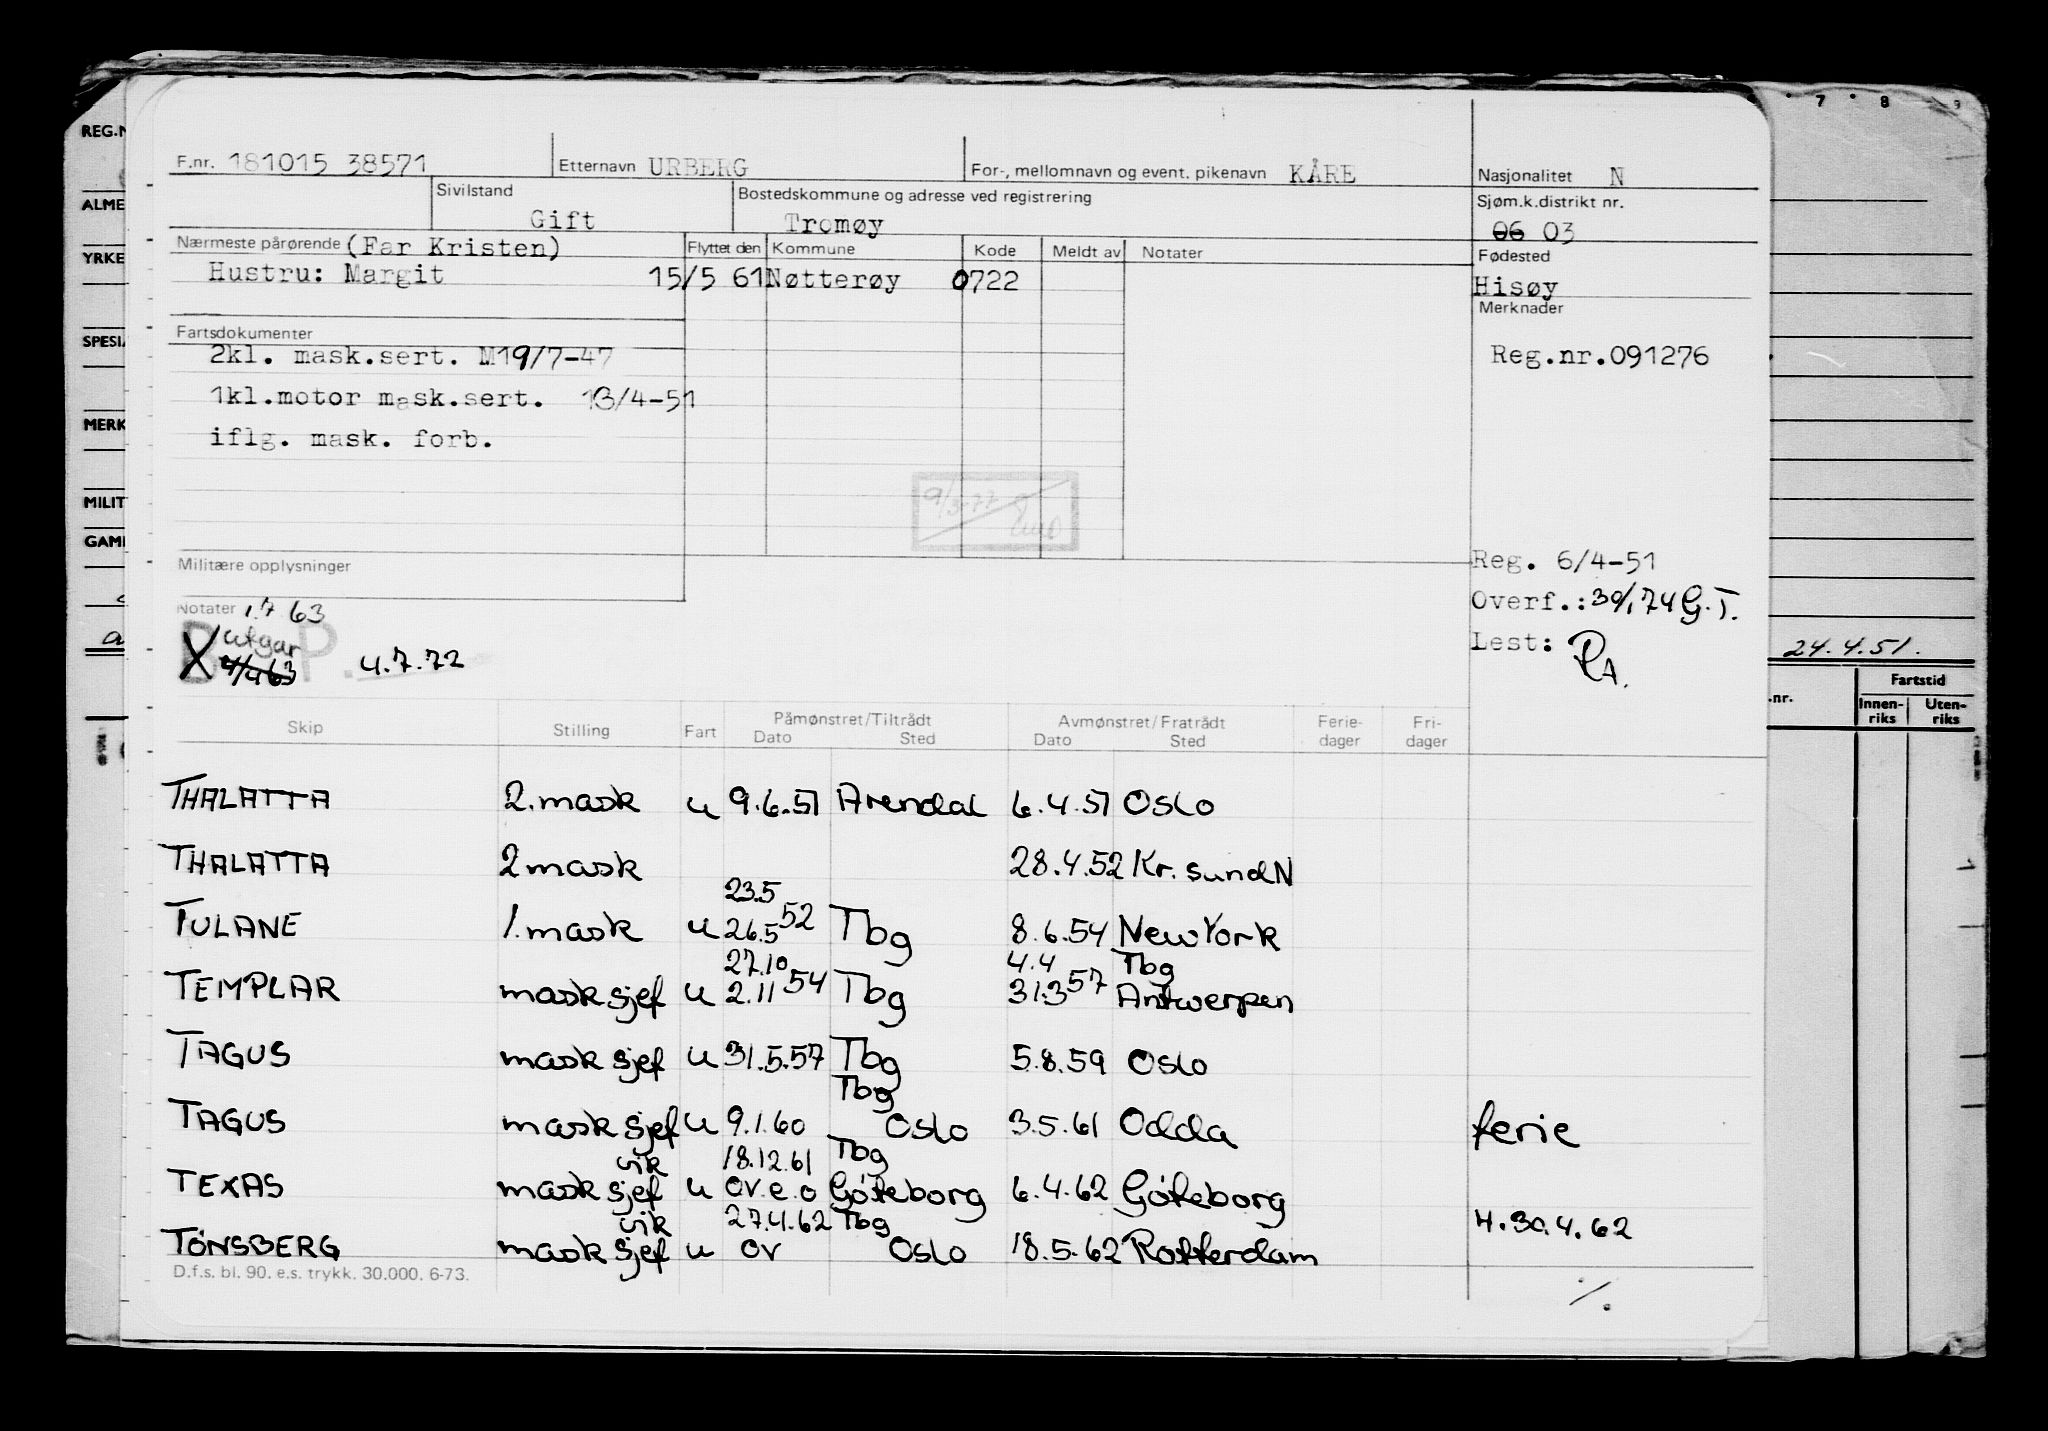 REG.N
7 8 9
F.nr. 181015 38571 Etternavn URBERG For-, mellomnavn og event. pikenavn KÅRE Nasjonalitet N
ALME
Sivilstand Gift Bostedskommune og adresse ved registrering Tromøy Sjøm.k.distrikt nr. 06 03
YRKE
Nærmeste pårørende (Far Kristen) Flyttet den Kommune Kode Meldt av Notater Fødested
Hustru: Margit 15/5 61 Nøtterøy 0722 Hisøy
Merknader
SPESIA
Fartsdokumenter
2kl. mask.sert. M19/7-47 Reg.nr.091276
1kl.motor mask.sert. 13/4-51
MERK
iflg. mask. forb.
MILIT
9/3-77
GAM
Militære opplysninger Reg. 6/4-51
Notater 1.7 63 Overf.: 30/1 74 G.T.
utgår B P. 4.7.72 Lest: RA.
X
24.4.51.
.nr. Fartstid
Innen-riks Uten-riks
Skip Stilling Fart Påmønstret/Tiltrådt Dato Sted Avmønstret/Fratrådt Dato Sted Ferie-dager Fri-dager
THALATTA 2.mask u 9.6.51 Arendal 6.4.51 Oslo
THALATTA 2 mask 28.4.52 Kr.sund N
23.5
TULANE 1.mask u 26.5 52 Tbg 8.6.54 New York
27.10 4.4 Tbg
TEMPLAR mask sjef u 2.11 54 Tbg 31.3 57 Antwerpen
TAGUS mask sjef u 31.5.57 Tbg 5.8.59 Oslo
Tbg
TAGUS mask sjef u 9.1.60 Oslo 3.5.61 Odda ferie
vik 18.12.61 Tbg
TEXAS mask sjef u ov.e.o Göteborg 6.4.62 Göteborg
vik 27.4.62 Tbg 4.30.4.62
TÖNSBERG mask sjef u ov Oslo 18.5.62 Rotterdam
D.f.s. bl. 90. e.s. trykk. 30.000. 6-73.
./.